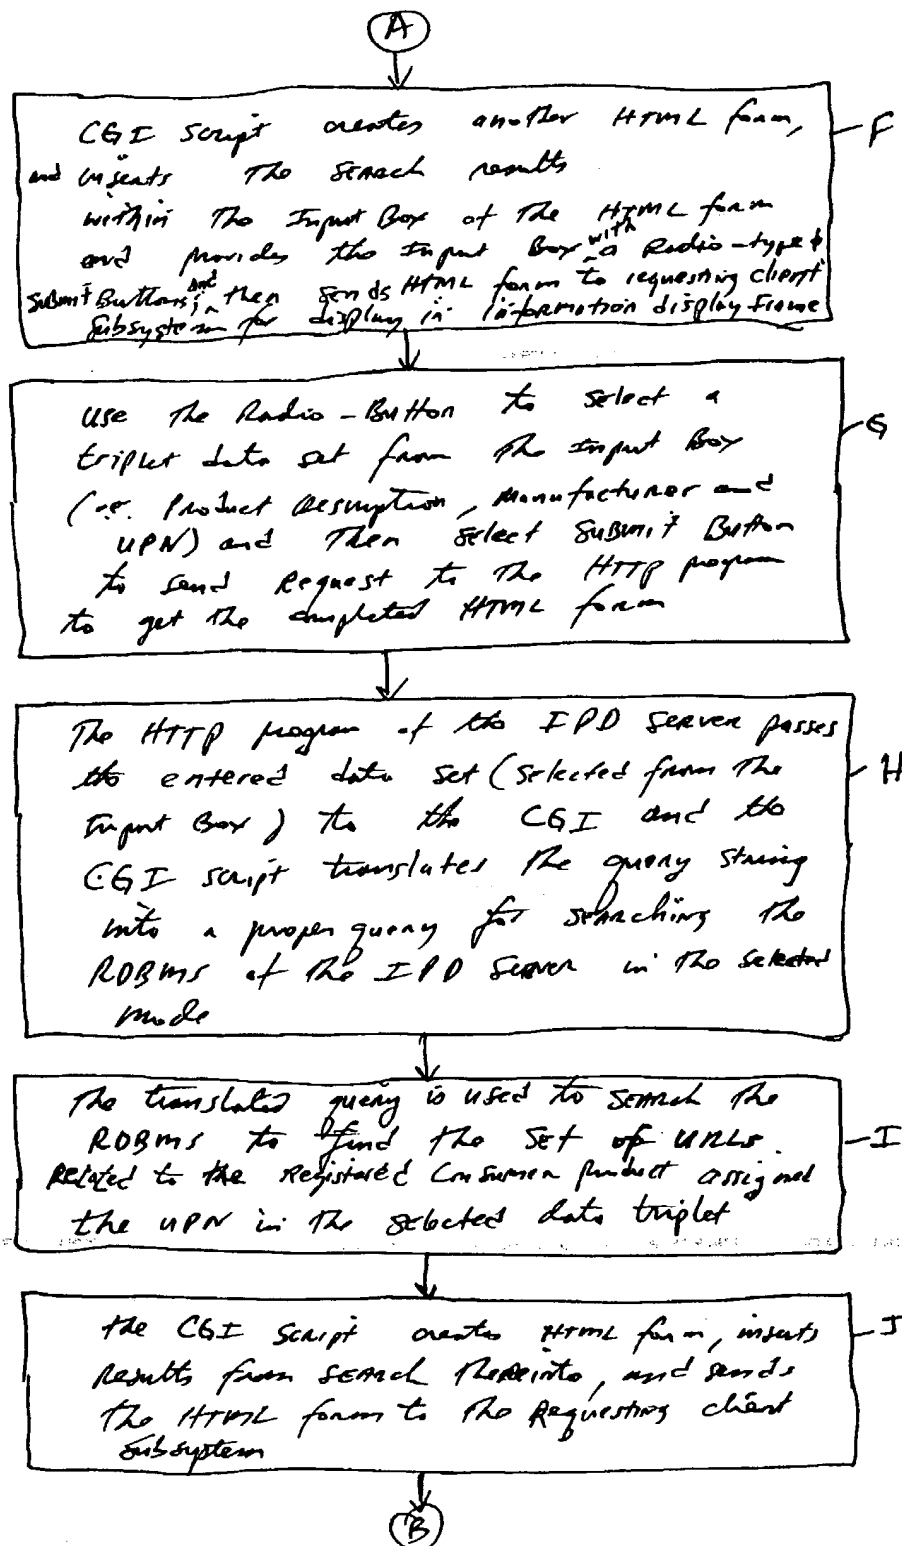 A
CGI script creates another HTML form,
F
and inserts the search results
within the Input Box of the HTML form
and provides the Input Box with a Radio-type &
Submit Buttons; and then sends HTML form to requesting client
subsystem for display in information display frame
use the Radio-Button to select a
G
triplet data set from the Input Box
(i.e. Product Description, Manufacturer and
UPN) and then select Submit Button
to send Request to the HTTP program
to get the completed HTML form
The HTTP program of the IPD server passes
the entered data set (selected from the
H
Input Box) to the CGI and the
CGI script translates the query string
into a proper query for searching the
RDBMS of the IPD Server in the selected
mode
The translated query is used to search the
RDBMS to find the set of URLs
I
Related to the Registered Consumer product assigned
the UPN in the selected data triplet
the CGI script creates HTML form, inserts
J
Results from search thereinto, and sends
the HTML form to the Requesting client
subsystem
B